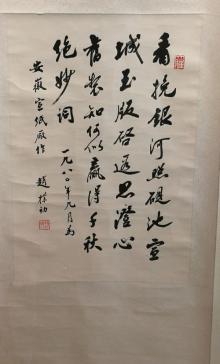 看挽银河照砚池宣
城玉版启遐思澄心
旧制知何似赢得千秋
绝妙词
一九八〇年九月为
安徽宣纸厂作
赵朴初